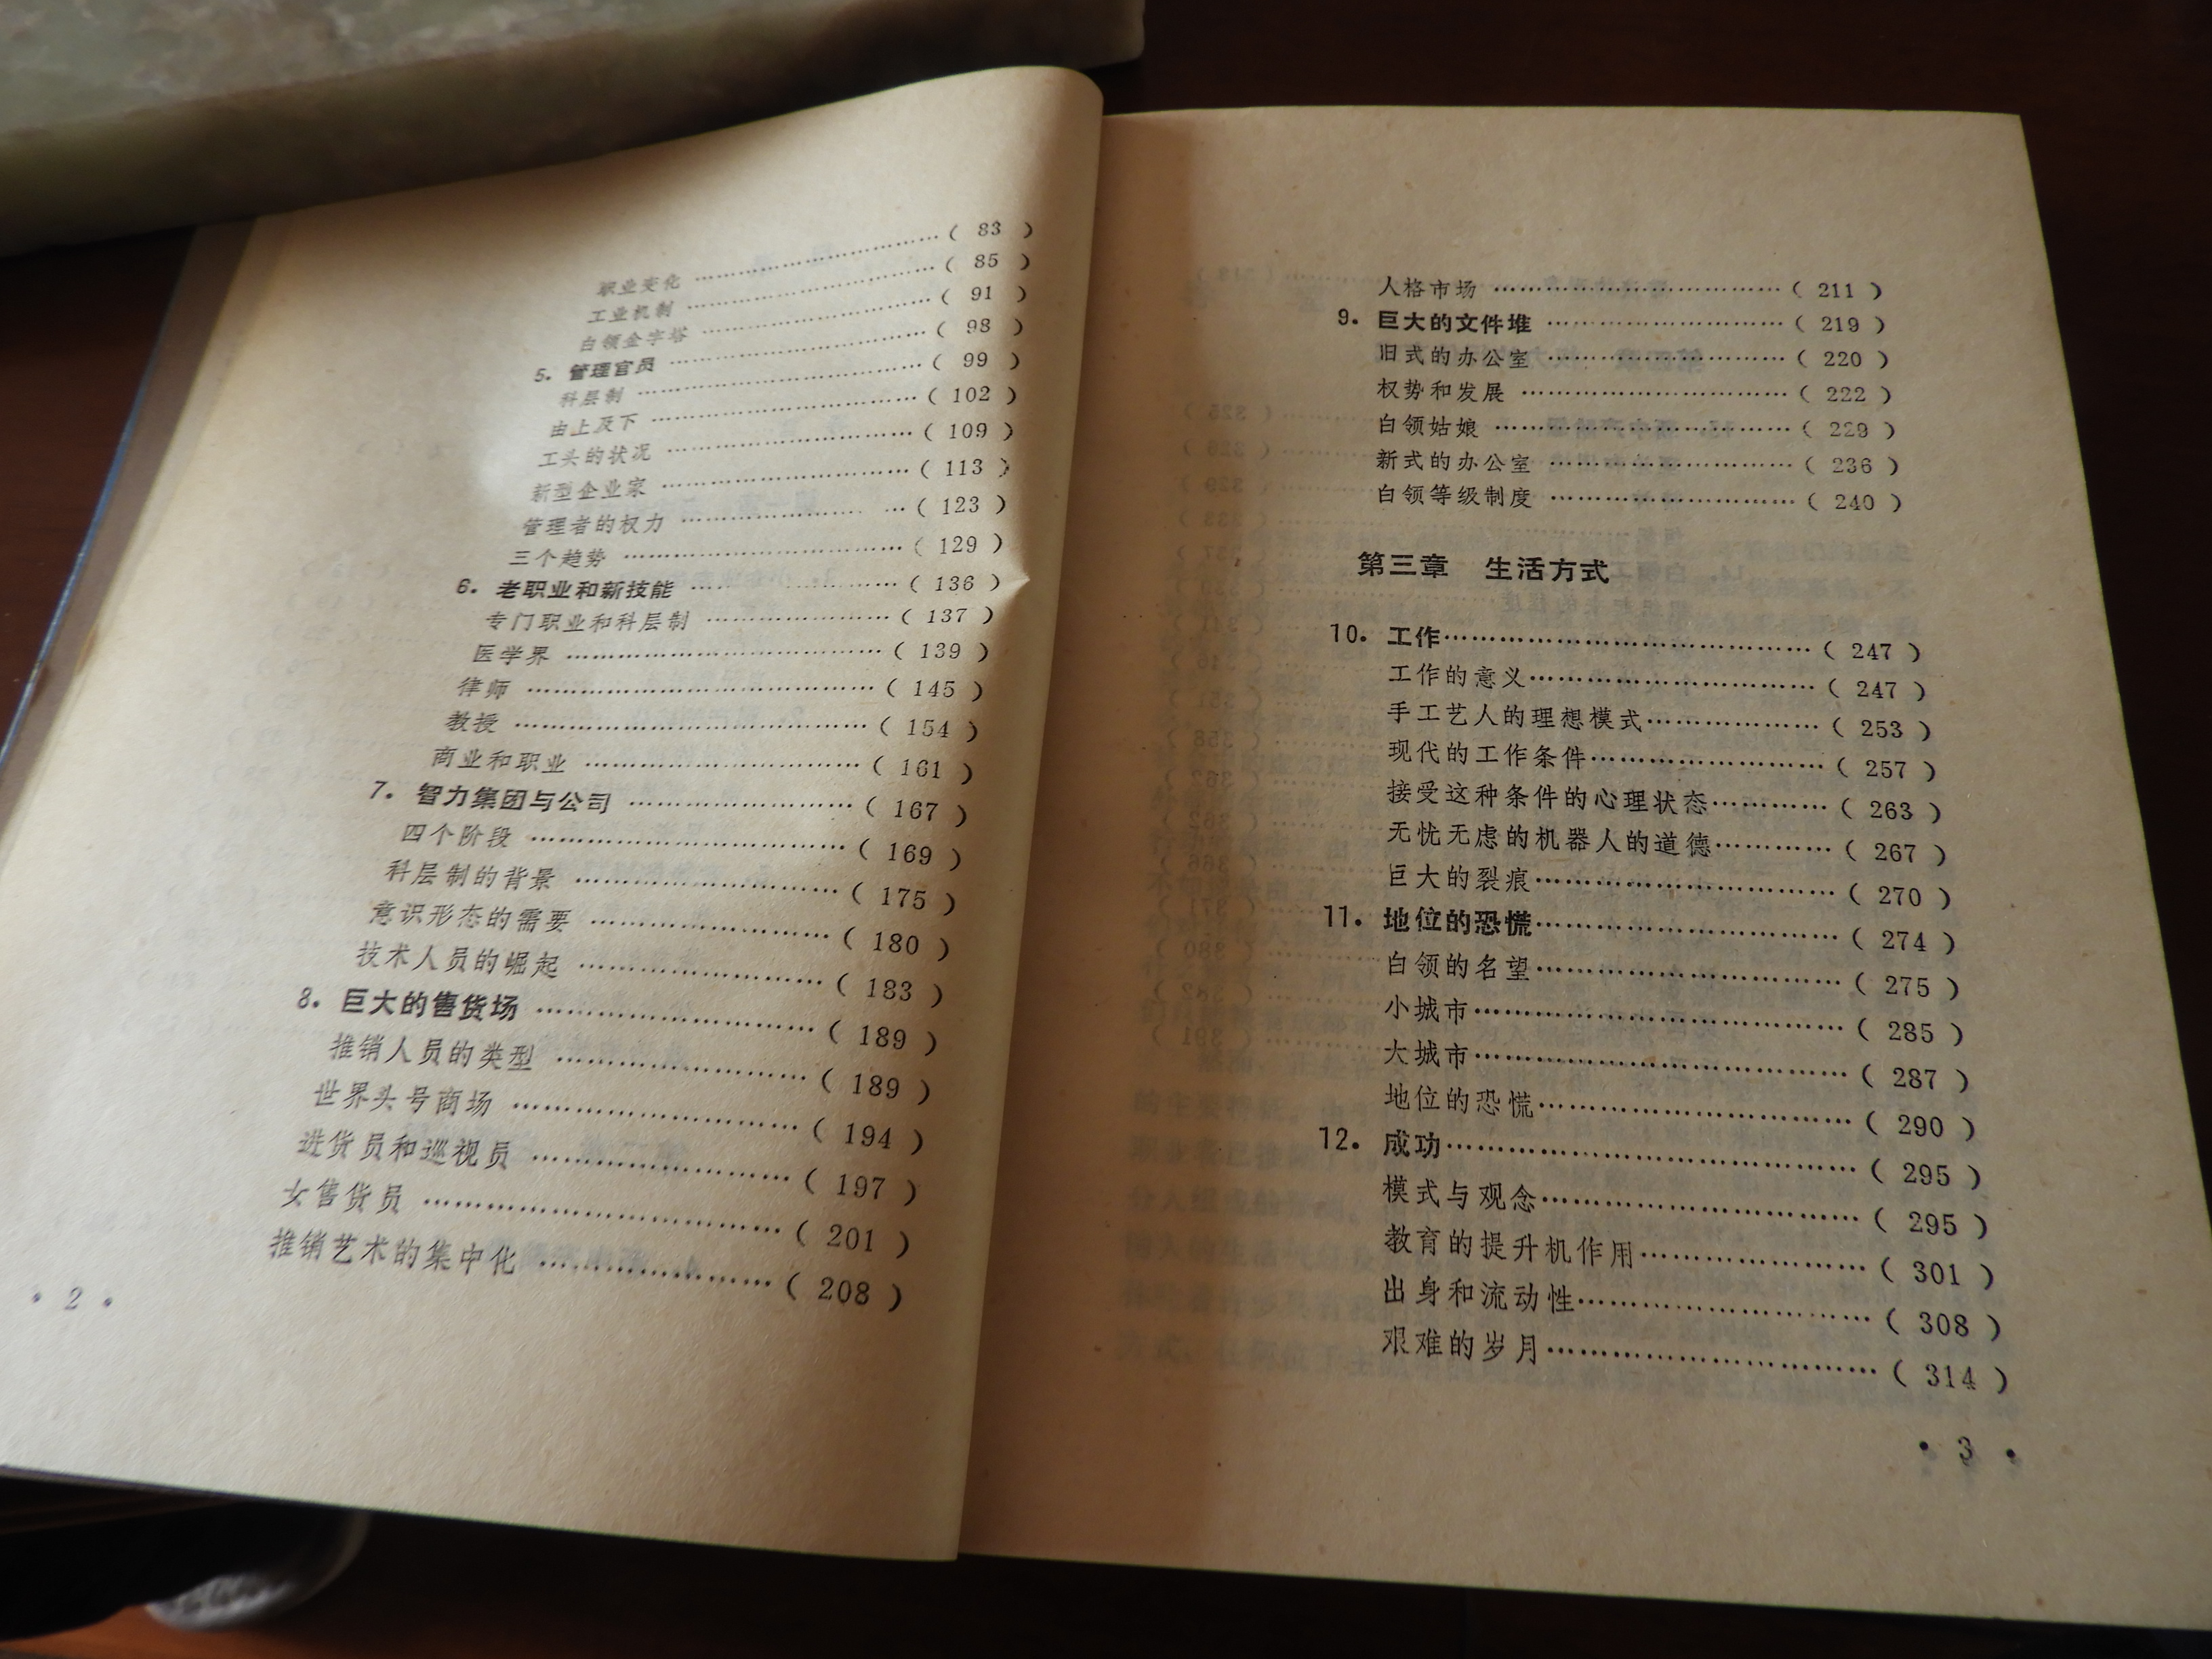 职业变化 ………………………… ( 83 )
工业机制 ………………………… ( 85 )
白领金字塔 ………………………… ( 91 )
5. 管理官员 ………………………… ( 98 )
科层制 ………………………… ( 99 )
由上及下 ………………………… ( 102 )
工头的状况 ………………………… ( 109 )
新型企业家 ………………………… ( 113 )
管理者的权力 ………………………… ( 123 )
三个趋势 ………………………… ( 129 )
6. 老职业和新技能 ………………………… ( 136 )
专门职业和科层制 ………………………… ( 137 )
医学界 ………………………… ( 139 )
律师 ………………………… ( 145 )
教授 ………………………… ( 154 )
商业和职业 ………………………… ( 161 )
7. 智力集团与公司 ………………………… ( 167 )
四个阶段 ………………………… ( 169 )
科层制的背景 ………………………… ( 175 )
意识形态的需要 ………………………… ( 180 )
技术人员的崛起 ………………………… ( 183 )
8. 巨大的售货场 ………………………… ( 189 )
推销人员的类型 ………………………… ( 189 )
世界头号商场 ………………………… ( 194 )
进货员和巡视员 ………………………… ( 197 )
女售货员 ………………………… ( 201 )
推销艺术的集中化 ………………………… ( 208 )
• 2 •
人格市场 ………………………… ( 211 )
9. 巨大的文件堆 ………………………… ( 219 )
旧式的办公室 ………………………… ( 220 )
权势和发展 ………………………… ( 222 )
白领姑娘 ………………………… ( 229 )
新式的办公室 ………………………… ( 236 )
白领等级制度 ………………………… ( 240 )
第三章 生活方式
10. 工作………………………… ( 247 )
工作的意义………………………… ( 247 )
手工艺人的理想模式………………… ( 253 )
现代的工作条件………………………… ( 257 )
接受这种条件的心理状态………… ( 263 )
无忧无虑的机器人的道德………… ( 267 )
巨大的裂痕………………………… ( 270 )
11. 地位的恐慌………………………… ( 274 )
白领的名望………………………… ( 275 )
小城市………………………… ( 285 )
大城市………………………… ( 287 )
地位的恐慌………………………… ( 290 )
12. 成功………………………… ( 295 )
模式与观念………………………… ( 295 )
教育的提升机作用………………… ( 301 )
出身和流动性………………………… ( 308 )
艰难的岁月………………………… ( 314 )
• 3 •